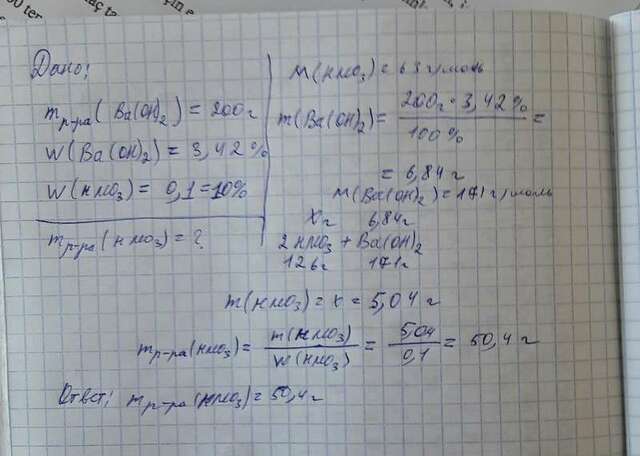 Дано:
mр-ра(Ba(OH)₂) = 200г
W(Ba(OH)₂) = 3,42%
W(HNO₃) = 0,1=10%
mр-ра(HNO₃) = ?
M(HNO₃) = 63 г/моль
m(Ba(OH)₂) = 200г · 3,42% / 100% =
= 6,84 г
M(Ba(OH)₂) = 171 г/моль
Xг 6,84г
2HNO₃ + Ba(OH)₂
126г 171г
m(HNO₃) = x = 5,04 г
mр-ра(HNO₃) = m(HNO₃) / W(HNO₃) = 5,04 / 0,1 = 50,4 г
Ответ: mр-ра(HNO₃) = 50,4г